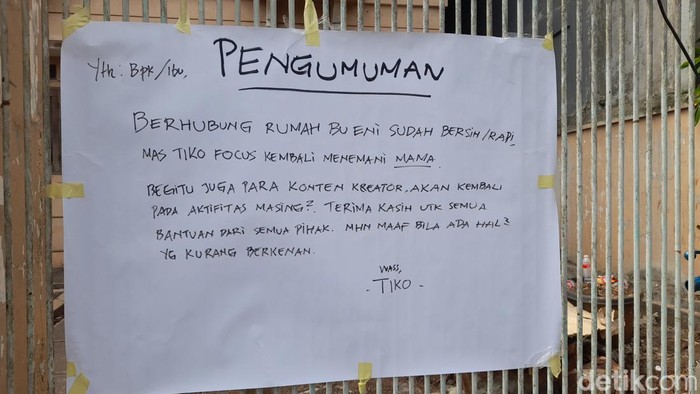 PENGUMUMAN
Yth : Bpk/ibu,
BERHUBUNG RUMAH BU ENI SUDAH BERSIH/RAPI,
MAS TIKO FOCUS KEMBALI MENEMANI MAMA.
BEGITU JUGA PARA KONTEN KREATOR, AKAN KEMBALI
PADA AKTIFITAS MASING². TERIMA KASIH UTK SEMUA
BANTUAN DARI SEMUA PIHAK. MHN MAAF BILA ADA HAL²
YG KURANG BERKENAN.
WASS,
- TIKO -
detikcom